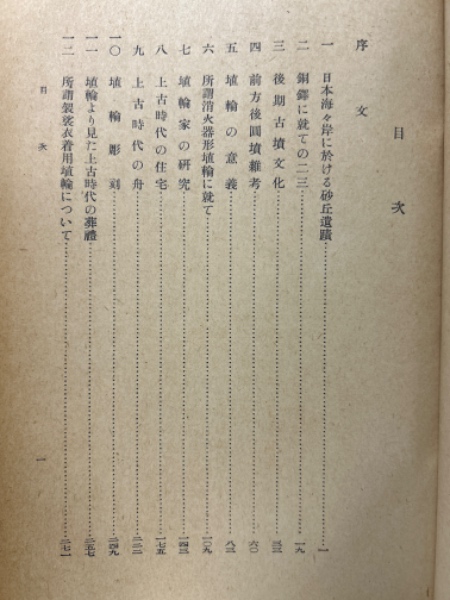 目次
序文
一 日本海々岸に於ける砂丘遺蹟 一
二 銅鐸に就ての二三 一九
三 後期古墳文化 三三
四 前方後圓墳雜考 六〇
五 埴輪の意義 八三
六 所謂消火器形埴輪に就て 一〇九
七 埴輪家の研究 一四三
八 上古時代の住宅 一七五
九 上古時代の舟 二二二
一〇 埴輪彫刻 二四九
一一 埴輪より見た上古時代の葬禮 二五七
一二 所謂袈裟衣着用埴輪について 二七一
目次
一